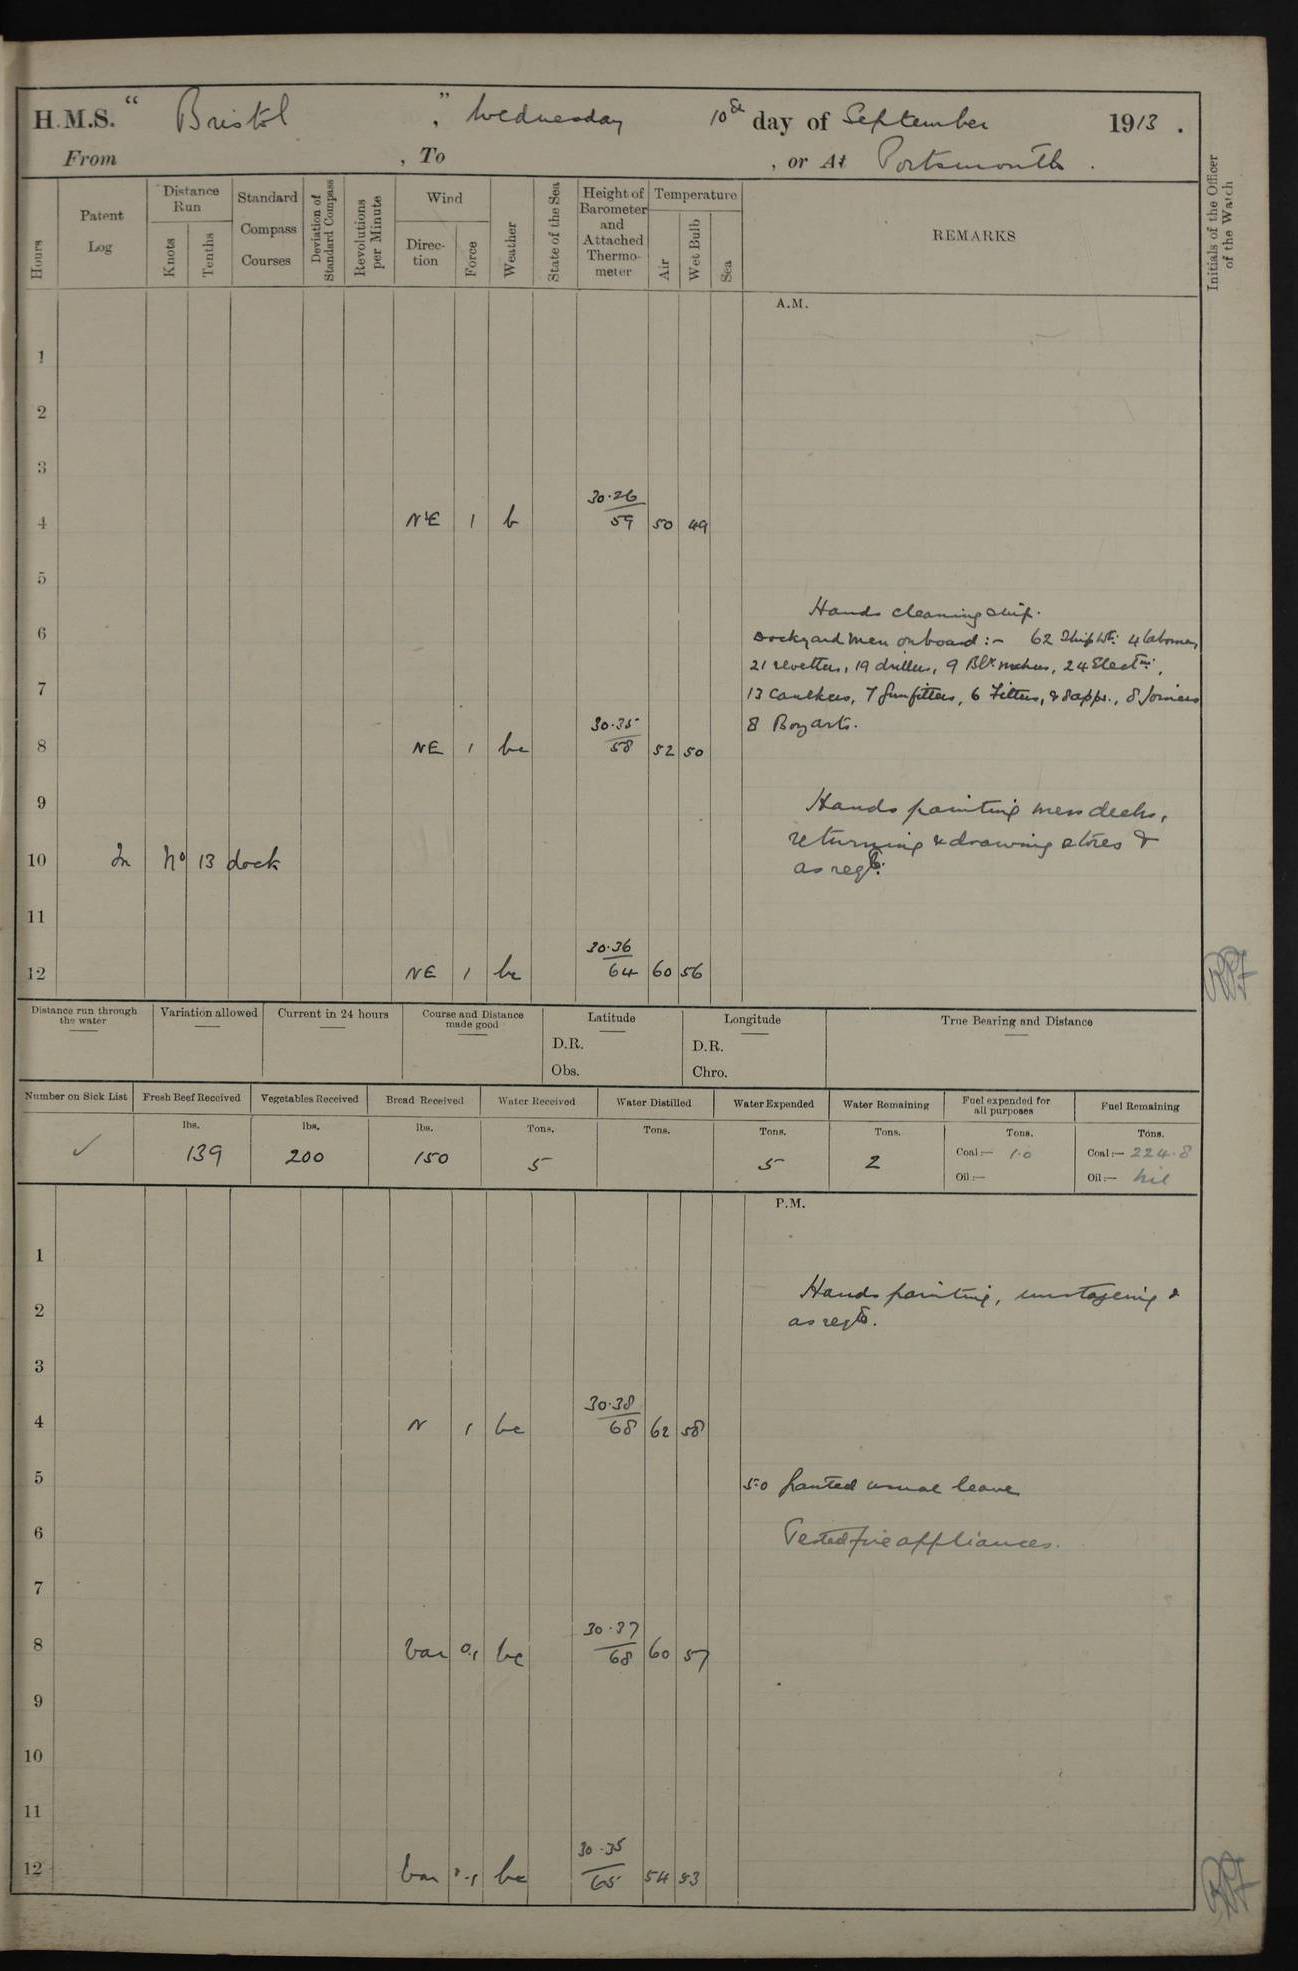 H.M.S. " Bristol ", Wednesday 10th day of September 1913.
From , To , or At Portsmouth.
Hours
Patent Log
Distance Run
Knots
Tenths
Standard Compass Courses
Deviation of Standard Compass
Revolutions per Minute
Wind
Direction
Force
Weather
State of the Sea
Height of Barometer and Attached Thermometer
Temperature
Air
Wet Bulb
Sea
REMARKS
Initials of the Officer of the Watch
A.M.
1
2
3
4 NE 1 b 30.26/59 50 49
5
Hands cleaning ship.
6 Dockyard men onboard :- 62 Shipwts: 4 labourers,
21 rivetters, 19 drillers, 9 Blk: 24 Electns:,
7 13 Caulkers, 7 Gunfitters, 6 Fitters, & 8 apps., 8 Joiners
8 Boy arts.
8 NE 1 bc 30.35/58 52 50
9 Hands painting mess decks,
returning & drawing stores &
10 In No 13 dock as reqd:
11
12 NE 1 bc 30.36/64 60 56
Distance run through the water
Variation allowed
Current in 24 hours
Course and Distance made good
Latitude
D.R.
Obs.
Longitude
D.R.
Chro.
True Bearing and Distance
Number on Sick List
Fresh Beef Received
Vegetables Received
Bread Received
Water Received
Water Distilled
Water Expended
Water Remaining
Fuel expended for all purposes
Fuel Remaining
lbs. lbs. lbs. Tons. Tons. Tons. Tons. Tons. Tons.
✓ 139 200 150 5 5 2 Coal:— 1.0 Coal:— 224.8
Oil:— Oil:— Nil
P.M.
1
2 Hands painting, unstageing &
as reqd.
3
4 N 1 bc 30.38/68 62 58
5 5.0 Granted usual leave
6 Tested fire appliances.
7
8 Var 0.1 bc 30.37/68 60 57
9
10
11
12 Var 0.1 bc 30.35/65 54 53